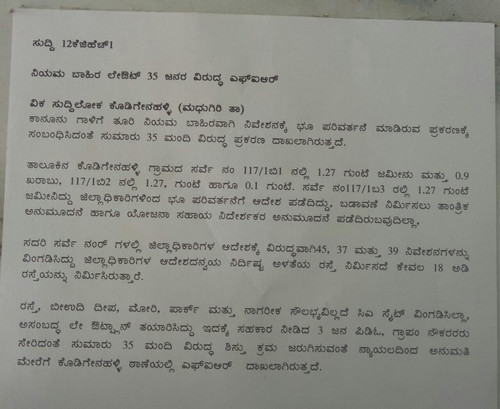 ಸುದ್ದಿ 12ಕೆಜಿಹೆಚ್1
ನಿಯಮ ಬಾಹಿರ ಲೇಔಟ್ 35 ಜನರ ವಿರುದ್ಧ ಎಫ್ಐಆರ್
ವಿಕ ಸುದ್ದಿಲೋಕ ಕೊಡಿಗೇನಹಳ್ಳಿ (ಮಧುಗಿರಿ ತಾ)
ಕಾನೂನು ಗಾಳಿಗೆ ತೂರಿ ನಿಯಮ ಬಾಹಿರವಾಗಿ ನಿವೇಶನಕ್ಕೆ ಭೂ ಪರಿವರ್ತನೆ ಮಾಡಿರುವ ಪ್ರಕರಣಕ್ಕೆ
ಸಂಬಂಧಿಸಿದಂತೆ ಸುಮಾರು 35 ಮಂದಿ ವಿರುದ್ಧ ಪ್ರಕರಣ ದಾಖಲಾಗಿರುತ್ತದೆ.
ತಾಲೂಕಿನ ಕೊಡಿಗೇನಹಳ್ಳಿ ಗ್ರಾಮದ ಸರ್ವೆ ನಂ 117/1ಬಿ1 ನಲ್ಲಿ 1.27 ಗುಂಟೆ ಜಮೀನು ಮತ್ತು 0.9
ಖರಾಬು, 117/1ಬಿ2 ನಲ್ಲಿ 1.27, ಗುಂಟೆ ಹಾಗೂ 0.1 ಗುಂಟೆ. ಸರ್ವೆ ನಂ117/1ಬಿ3 ರಲ್ಲಿ 1.27 ಗುಂಟೆ
ಜಮೀನಿದ್ದು ಜಿಲ್ಲಾಧಿಕಾರಿಗಳಿಂದ ಭೂ ಪರಿವರ್ತನೆಗೆ ಆದೇಶ ಪಡೆದಿದ್ದು, ಬಡಾವಣೆ ನಿರ್ಮಿಸಲು ತಾಂತ್ರಿಕ
ಅನುಮೂದನೆ ಹಾಗೂ ಯೋಜನಾ ಸಹಾಯ ನಿರ್ದೇಶಕರ ಅನುಮೂದನೆ ಪಡೆದಿರುಬವುದಿಲ್ಲಾ,
ಸದರಿ ಸರ್ವೆ ನಂರ್ ಗಳಲ್ಲಿ ಜಿಲ್ಲಾಧಿಕಾರಿಗಳ ಆದೇಶಕ್ಕೆ ವಿರುದ್ಧವಾಗಿ45, 37 ಮತ್ತು 39 ನಿವೇಶನಗಳನ್ನು
ವಿಂಗಡಿಸಿದ್ದು ಜಿಲ್ಲಾಧಿಕಾರಿಗಳ ಆದೇಶದನ್ವಯ ನಿರ್ದಿಷ್ಟ ಅಳತೆಯ ರಸ್ತೆ ನಿರ್ಮಿಸದೆ ಕೇವಲ 18 ಅಡಿ
ರಸ್ತೆಯನ್ನು ನಿರ್ಮಿಸಿರುತ್ತಾರೆ.
ರಸ್ತೆ, ಬೀಉದಿ ದೀಪ, ಮೋರಿ, ಪಾರ್ಕ್ ಮತ್ತು ನಾಗರೀಕ ಸೌಲಭ್ಯವಿಲ್ಲದೆ ಸಿಎ ಸೈಟ್ ವಿಂಗಡಿಸಿಲ್ಲಾ,
ಅಸಂಬದ್ಧ ಲೇ ಔಟ್ಪ್ಲಾನ್ ತಯಾರಿಸಿದ್ದು ಇದಕ್ಕೆ ಸಹಕಾರ ನೀಡಿದ 3 ಜನ ಪಿಡಿಓ, ಗ್ರಾಪಂ ನೌಕರರರು
ಸೇರಿದಂತೆ ಸುಮಾರು 35 ಮಂದಿ ವಿರುದ್ಧ ಶಿಸ್ತು ಕ್ರಮ ಜರುಗಿಸುವಂತೆ ನ್ಯಾಯಲದಿಂದ ಅನುಮತಿ
ಮೇರೆಗೆ ಕೊಡಿಗೇನಹಳ್ಳಿ ಠಾಣೆಯಲ್ಲಿ ಎಫ್ಐಆರ್ ದಾಖಲಾಗಿರುತ್ತದೆ.